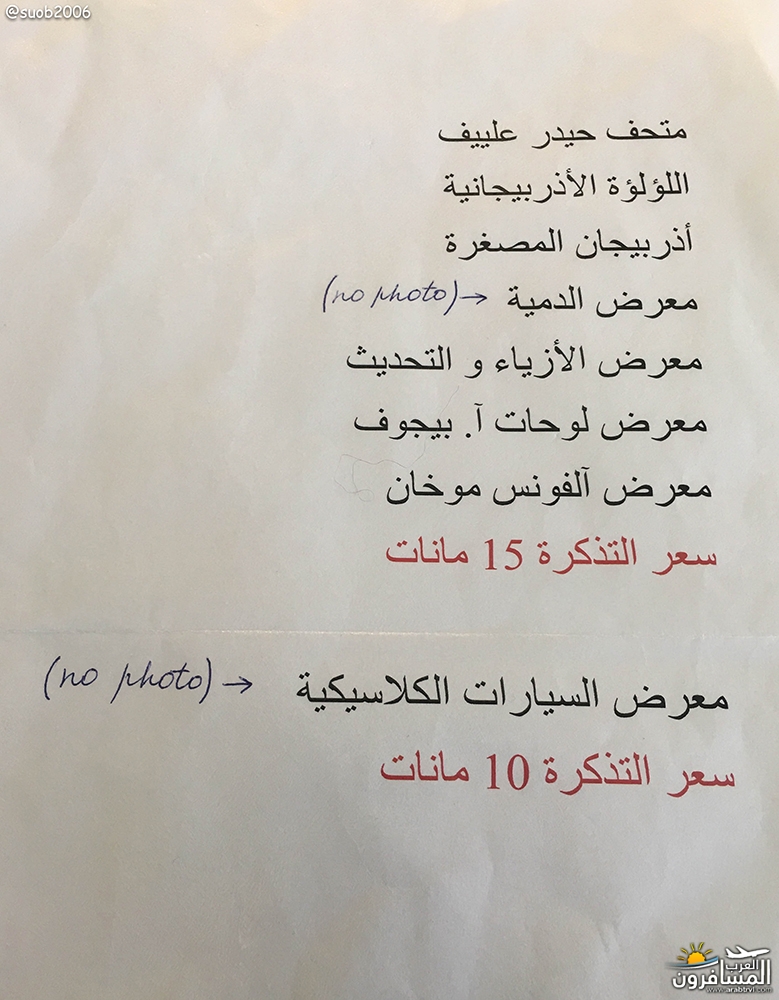 @suob2006
متحف حيدر علييف
اللؤلؤة الأذربيجانية
أذربيجان المصغرة
معرض الدمية ← (no photo)
معرض الأزياء و التحديث
معرض لوحات آ. بيجوف
معرض آلفونس موخان
سعر التذكرة 15 مانات
معرض السيارات الكلاسيكية ← (no photo)
سعر التذكرة 10 مانات
العرب
المسافرون
www.arabtrvl.com